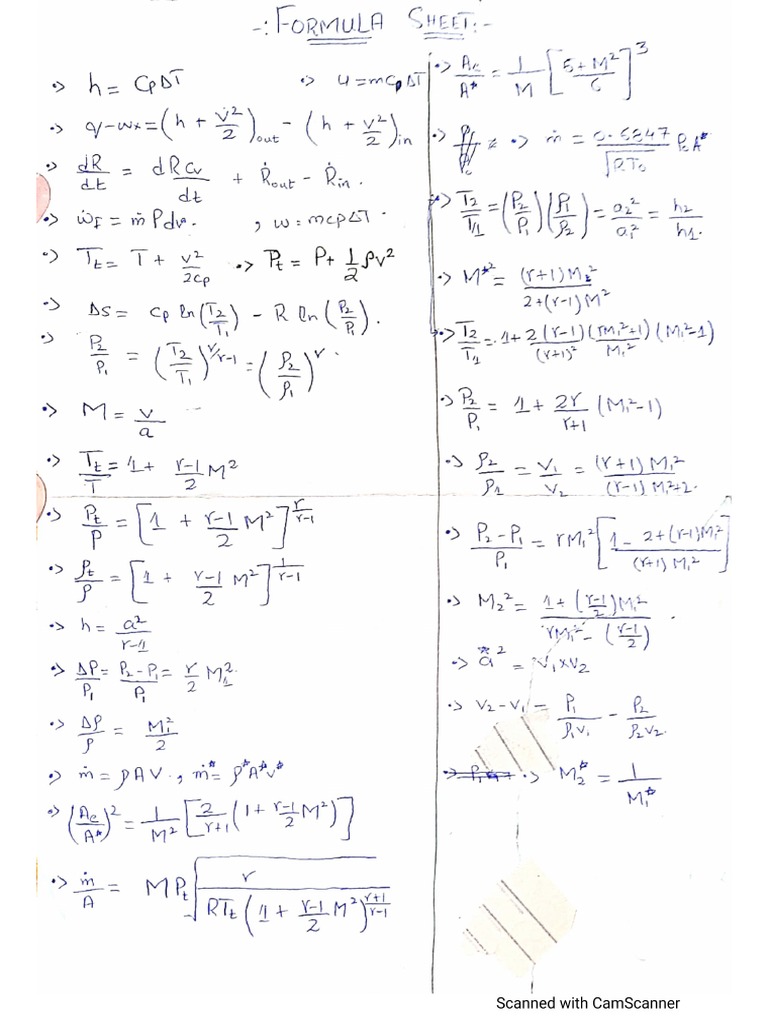 -: FORMULA SHEET:-
·> h = CpΔT ·> u = mcpΔT
·> q-wx = (h + v̇²/2)out - (h + v²/2)in
·> dR/dt = dRcv/dt + Ṙout - Ṙin.
·> ẇf = ṁPdv. , w = mcpΔT.
·> Tt = T + v²/2cp ·> Pt = P + 1/2 ρv²
·> Δs = cp ln(T2/T1) - R ln(P2/P1).
·> P2/P1 = (T2/T1)^r/r-1 = (ρ2/ρ1)^r.
·> M = v/a
·> Tt/T = 1 + r-1/2 M²
·> Pt/P = [1 + r-1/2 M²]^r/r-1
·> ρt/ρ = [1 + r-1/2 M²]^1/r-1
·> h = a²/r-1
·> ΔP/P1 = P2-P1/P1 = r/2 M1²
·> Δρ/ρ = M1²/2
·> ṁ = ρAV , ṁ* = ρ*A*v*
·> (Ae/A*)² = 1/M² [2/r+1 (1 + r-1/2 M²)]
·> ṁ/A = MPt √r/RTt(1 + r-1/2 M²)^r+1/r-1
·> Ae/A* = 1/M [5+M²/6]³
·> ·> ṁ = 0.6847/√RT0 P0A*
·> T2/T1 = (P2/P1)(ρ1/ρ2) = a2²/a1² = h2/h1.
·> M*² = (r+1)M²/2+(r-1)M²
·> T2/T1 = 1+2(r-1)/(r+1)² (rM1²+1)/M1² (M1²-1)
·> P2/P1 = 1 + 2r/r+1 (M1²-1)
·> ρ2/ρ1 = V1/V2 = (r+1)M1²/(r-1)M1²+2.
·> P2-P1/P1 = rM1² [1 - 2+(r-1)M1²/(r+1)M1²]
·> M2² = 1+(r-1/2)M1²/rM1² - (r-1/2).
·> a*² = V1×V2
·> V2-V1 = P1/ρ1V1 - P2/ρ2V2.
·> M2* = 1/M1*
Scanned with CamScanner